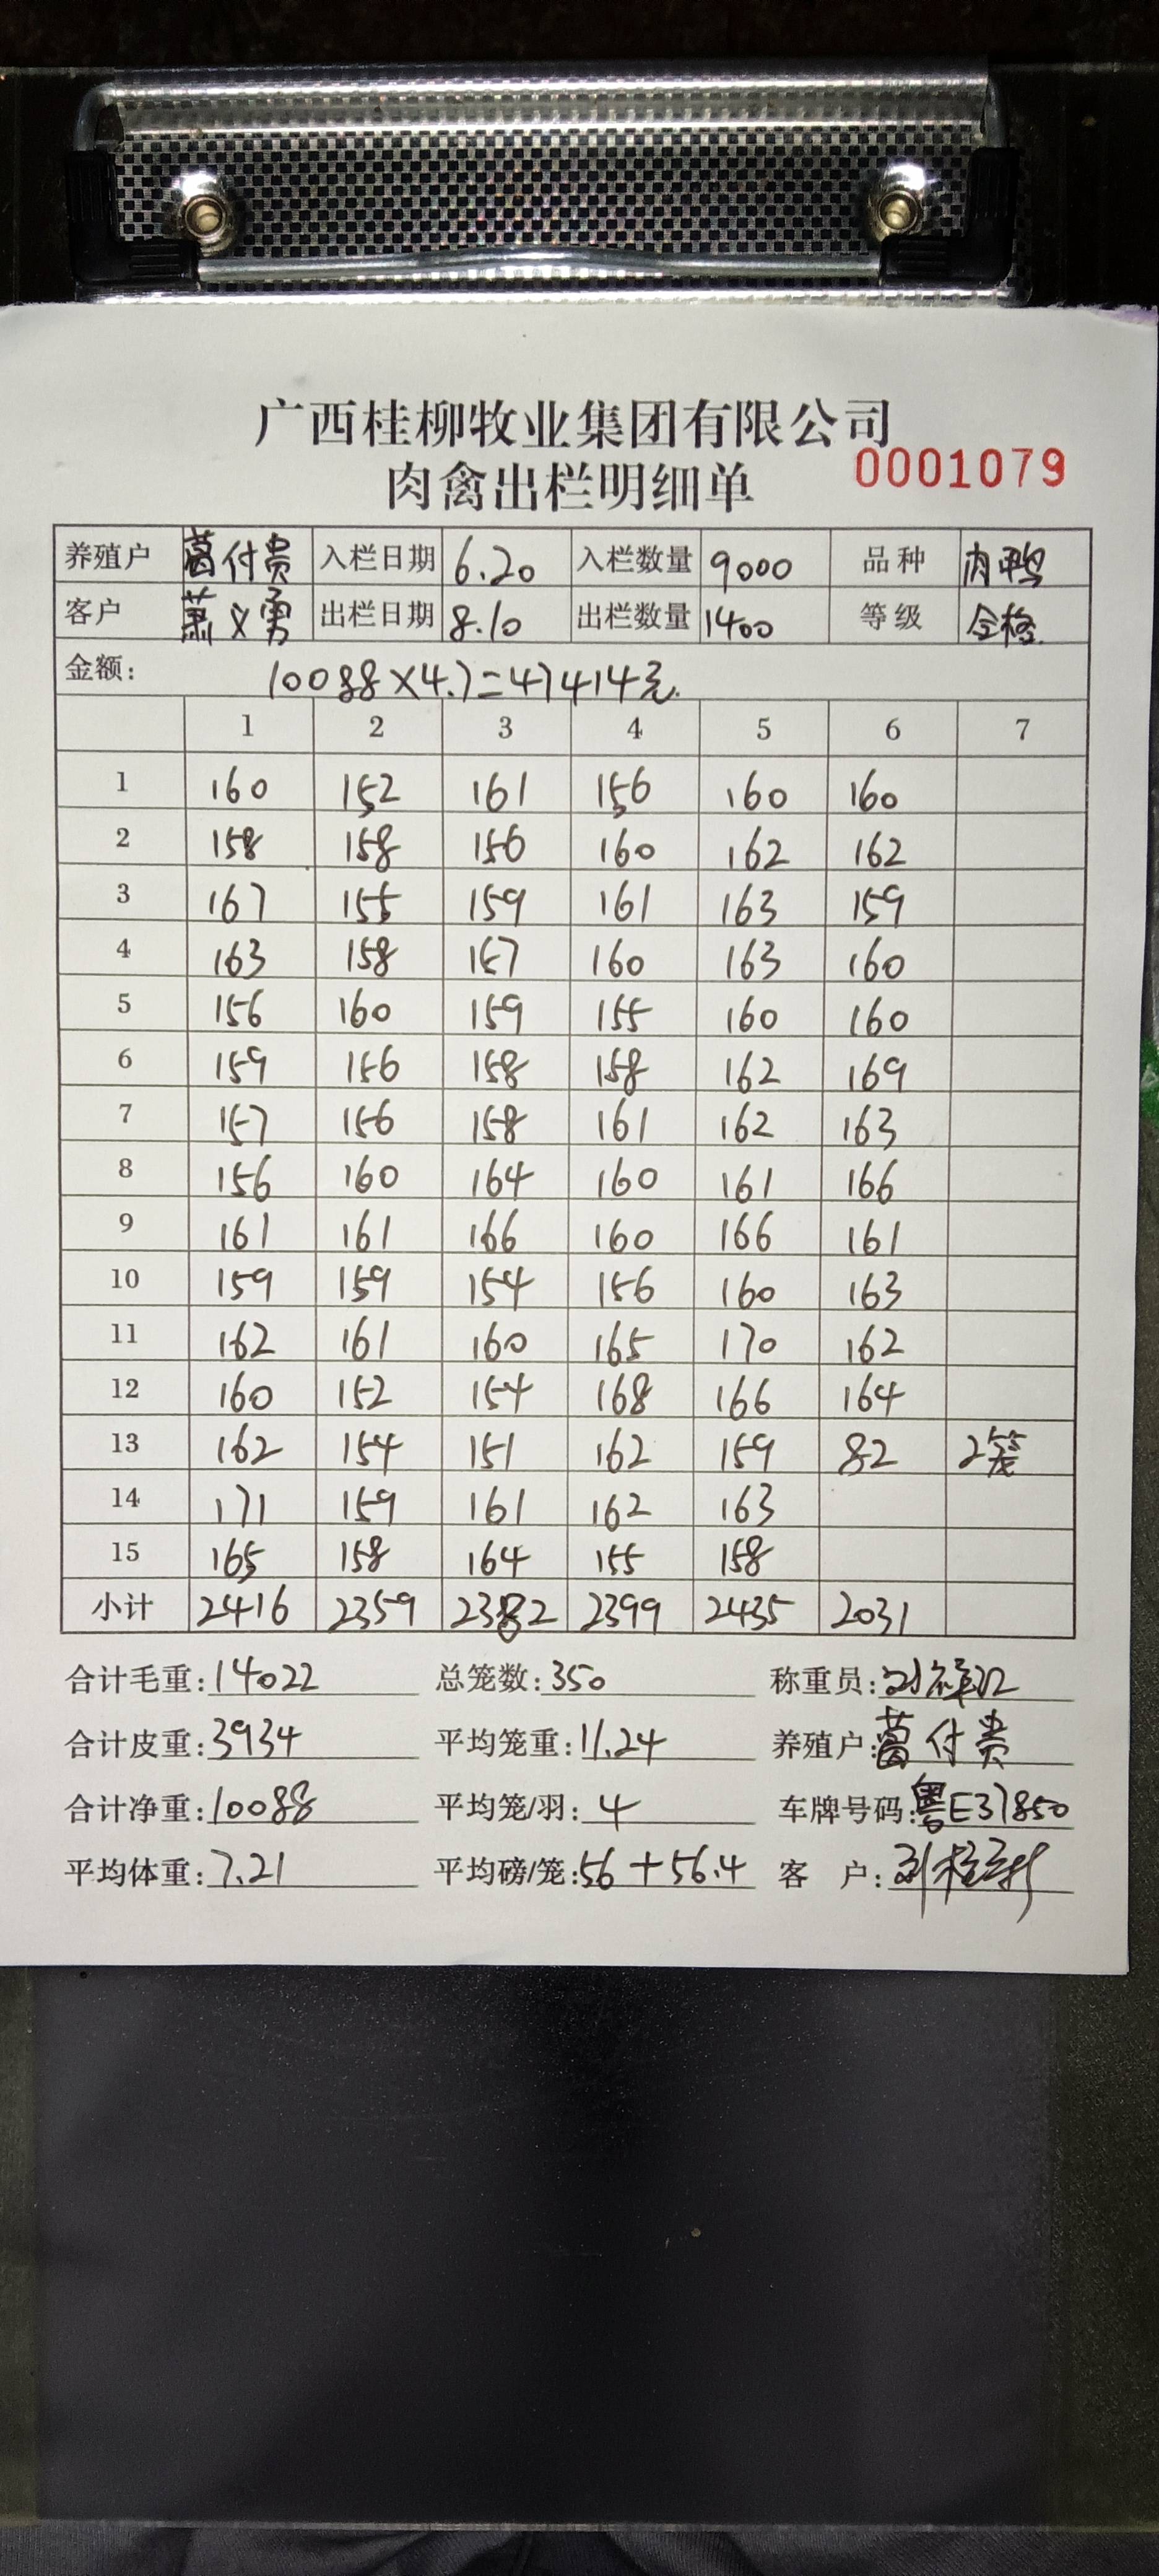 广西桂柳牧业集团有限公司
肉禽出栏明细单 0001079
养殖户 葛付贵 入栏日期 6.20 入栏数量 9000 品种 肉鸭
客户 萧义勇 出栏日期 8.10 出栏数量 1400 等级 合格
金额: 10088×4.7=47414元.
1 2 3 4 5 6 7
1 160 152 161 156 160 160
2 158 158 156 160 162 162
3 167 155 159 161 163 159
4 163 158 157 160 163 160
5 156 160 159 155 160 160
6 159 156 158 158 162 169
7 157 156 158 161 162 163
8 156 160 164 160 161 166
9 161 161 166 160 166 161
10 159 159 154 156 160 163
11 162 161 160 165 170 162
12 160 152 154 168 166 164
13 162 154 151 162 159 82 2笼
14 171 159 161 162 163
15 165 158 164 155 158
小计 2416 2359 2382 2399 2435 2031
合计毛重:14022 总笼数:350 称重员:
合计皮重:3934 平均笼重:11.24 养殖户:葛付贵
合计净重:10088 平均笼/羽:4 车牌号码:粤E37850
平均体重:7.21 平均磅/笼:56+56.4 客 户: